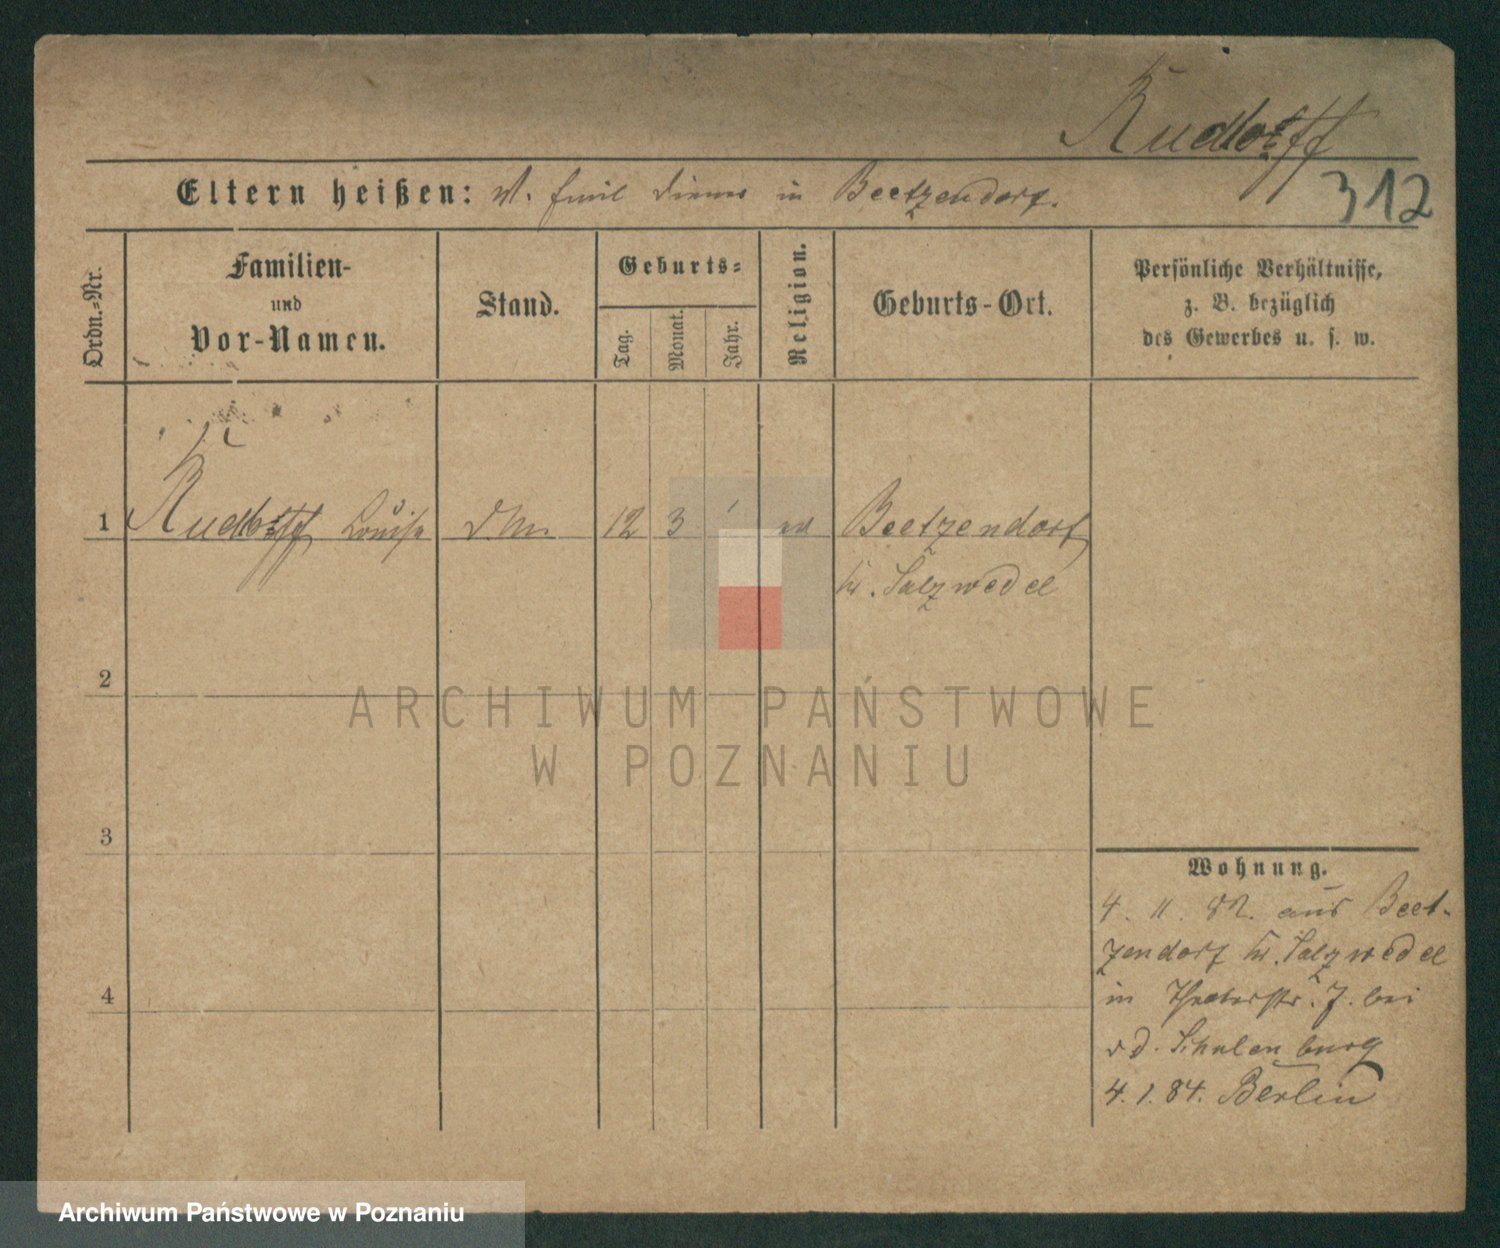 Rudloff
312
Eltern heißen: Emil in Beetzendorf.
Ordn.-Nr.
Familien-
und
Vor-Namen.
Stand.
Geburts-
Tag.
Monat.
Jahr.
Religion.
Geburts-Ort.
Persönliche Verhältnisse,
z. B. bezüglich
des Gewerbes u. s. w.
1 Louise 12 3 Beetzendorf
Kr. Salzwedel
2
3
4
Wohnung.
4. 11. 82. aus Beet-
zendorf Kr. Salzwedel
in Theaterstr. 7. bei
v d. Schulenburg
4. 1. 84. Berlin
ARCHIWUM PAŃSTWOWE
W POZNANIU
Archiwum Państwowe w Poznaniu